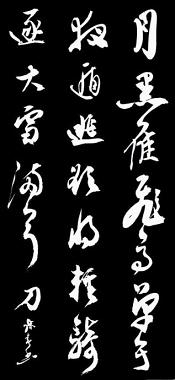 月黑雁飛高單于
夜遁逃欲將輕騎
逐大雪滿弓刀